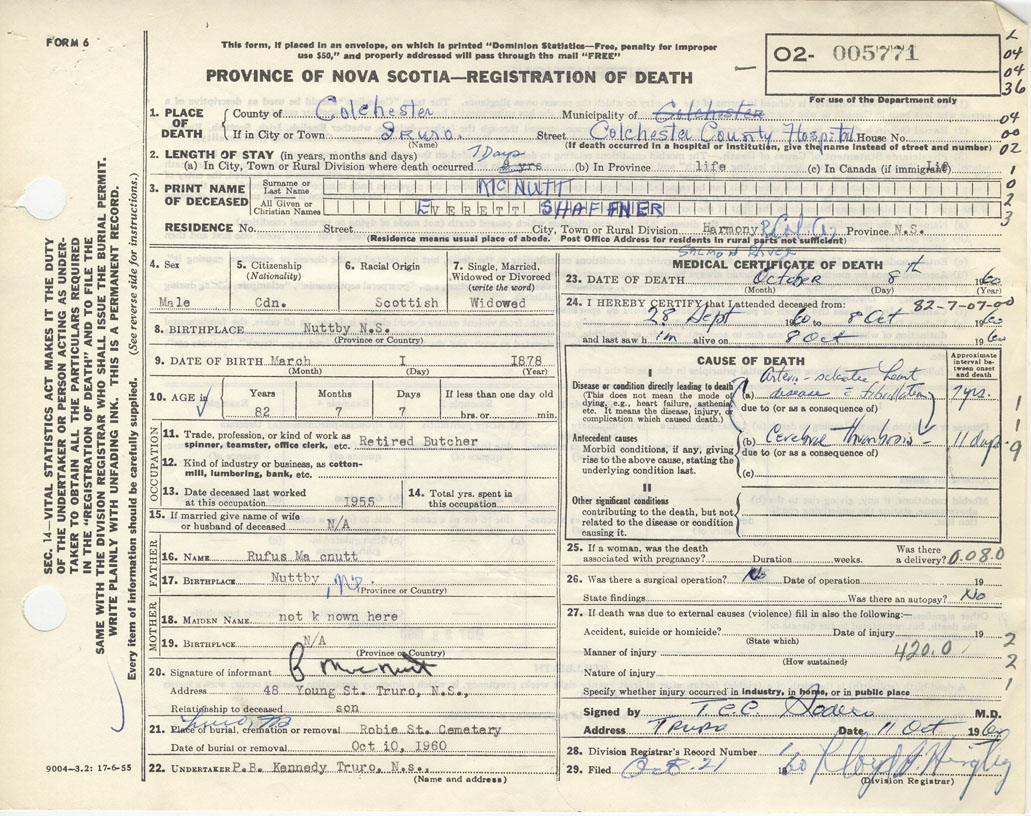 FORM 6
This form, if placed in an envelope, on which is printed "Dominion Statistics—Free, penalty for improper
use $50," and properly addressed will pass through the mail "FREE"
PROVINCE OF NOVA SCOTIA—REGISTRATION OF DEATH
02- 005771
For use of the Department only
04
04
36
04
00
02
1
0
2
3
1. PLACE OF DEATH
County of Colchester Municipality of Colchester
If in City or Town Truro. Street Colchester County Hospital House No.
(Name) (If death occurred in a hospital or institution, give the name instead of street and number)
2. LENGTH OF STAY (in years, months and days) 7 Days
(a) In City, Town or Rural Division where death occurred 8 yrs (b) In Province life (c) In Canada (if immigrant) Life
3. PRINT NAME OF DECEASED
Surname or Last Name MCNUTT
All Given or Christian Names EVERETT SHAFFNER
RESIDENCE No. Street City, Town or Rural Division Harmony Col. Co. Province N.S.
(Residence means usual place of abode. Post Office Address for residents in rural parts not sufficient)
SALMON RIVER
SEC. 14—VITAL STATISTICS ACT MAKES IT THE DUTY
OF THE UNDERTAKER OR PERSON ACTING AS UNDER-
TAKER TO OBTAIN ALL THE PARTICULARS REQUIRED
IN THE "REGISTRATION OF DEATH" AND TO FILE THE
SAME WITH THE DIVISION REGISTRAR WHO SHALL ISSUE THE BURIAL PERMIT.
WRITE PLAINLY WITH UNFADING INK. THIS IS A PERMANENT RECORD.
Every item of information should be carefully supplied. (See reverse side for instructions.)
4. Sex
Male
5. Citizenship
(Nationality)
Cdn.
6. Racial Origin
Scottish
7. Single, Married,
Widowed or Divorced
(write the word)
Widowed
8. BIRTHPLACE Nuttby N.S.
(Province or Country)
9. DATE OF BIRTH March I 1878
(Month) (Day) (Year)
10. AGE in
Years Months Days If less than one day old
82 7 7 hrs. or min.
OCCUPATION
11. Trade, profession, or kind of work as
spinner, teamster, office clerk. etc. Retired Butcher
12. Kind of industry or business, as cotton-
mill, lumbering, bank, etc.
13. Date deceased last worked
at this occupation 1955
14. Total yrs. spent in
this occupation
15. If married give name of wife
or husband of deceased N/A
FATHER
16. NAME Rufus Ma cnutt
17. BIRTHPLACE Nuttby NS.
(Province or Country)
MOTHER
18. MAIDEN NAME not k nown here
19. BIRTHPLACE N/A
(Province or Country)
20. Signature of informant B MacNutt
Address 48 Young St. Truro, N.S.,
Relationship to deceased son
Truro, NS
21. Place of burial, cremation or removal Robie St. Cemetary
Date of burial or removal Oct 10, 1960
22. UNDERTAKER P.B. Kennedy Truro, N.S.,
(Name and address)
9004—3.2: 17-6-55
MEDICAL CERTIFICATE OF DEATH
23. DATE OF DEATH October 8th 1960
(Month) (Day) (Year)
24. I HEREBY CERTIFY that I attended deceased from: 82-7-07-00
28 Sept 1960 to 8 Oct 1960
and last saw h im alive on 8 Oct 1960
CAUSE OF DEATH
Approximate
interval be-
tween onset
and death
I
Disease or condition directly leading to death
(This does not mean the mode of
dying, e.g., heart failure, asthenia,
etc. It means the disease, injury, or
complication which caused death.)
(a) Arterio-sclerotic heart
disease c Fibrillation 7 yrs.
due to (or as a consequence of)
Antecedent causes
Morbid conditions, if any, giving
rise to the above cause, stating the
underlying condition last.
(b) Cerebral thrombosis - 11 days
due to (or as a consequence of)
(c)
1
1
9
II
Other significant conditions
contributing to the death, but not
related to the disease or condition
causing it.
25. If a woman, was the death
associated with pregnancy? Duration weeks. Was there
a delivery? 0.08.0
26. Was there a surgical operation? No Date of operation 19
State findings Was there an autopsy? No
27. If death was due to external causes (violence) fill in also the following:—
Accident, suicide or homicide? Date of injury 19
(State which)
Manner of injury 420.0
(How sustained)
Nature of injury
2
2
1
Specify whether injury occurred in industry, in home, or in public place
Signed by T.C.C. Sodero M.D.
Address TRURO Date 11 Oct 1960
28. Division Registrar's Record Number
29. Filed Oct. 21 1960
(Division Registrar)